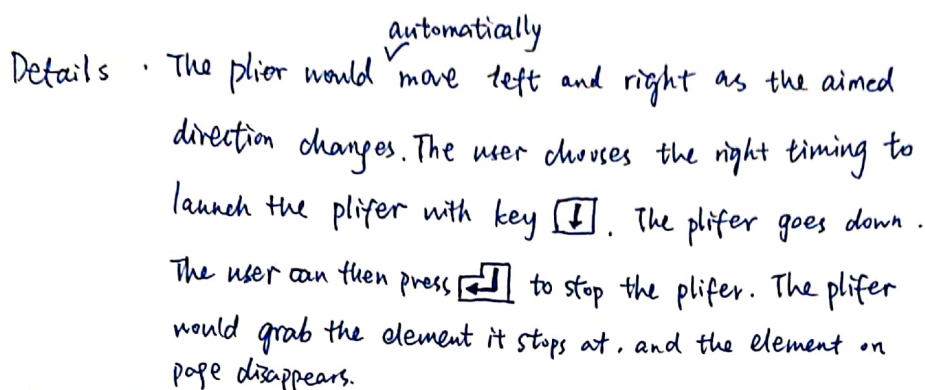 automatically
Details · The plier would move left and right as the aimed
direction changes. The user chooses the right timing to
launch the plifer with key ↓. The plifer goes down.
The user can then press ↵ to stop the plifer. The plifer
would grab the element it stops at, and the element on
page disappears.